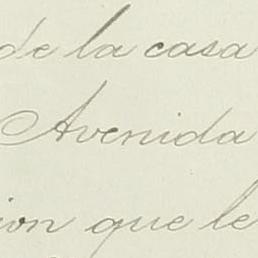 de la casa
Avenida
ion que le